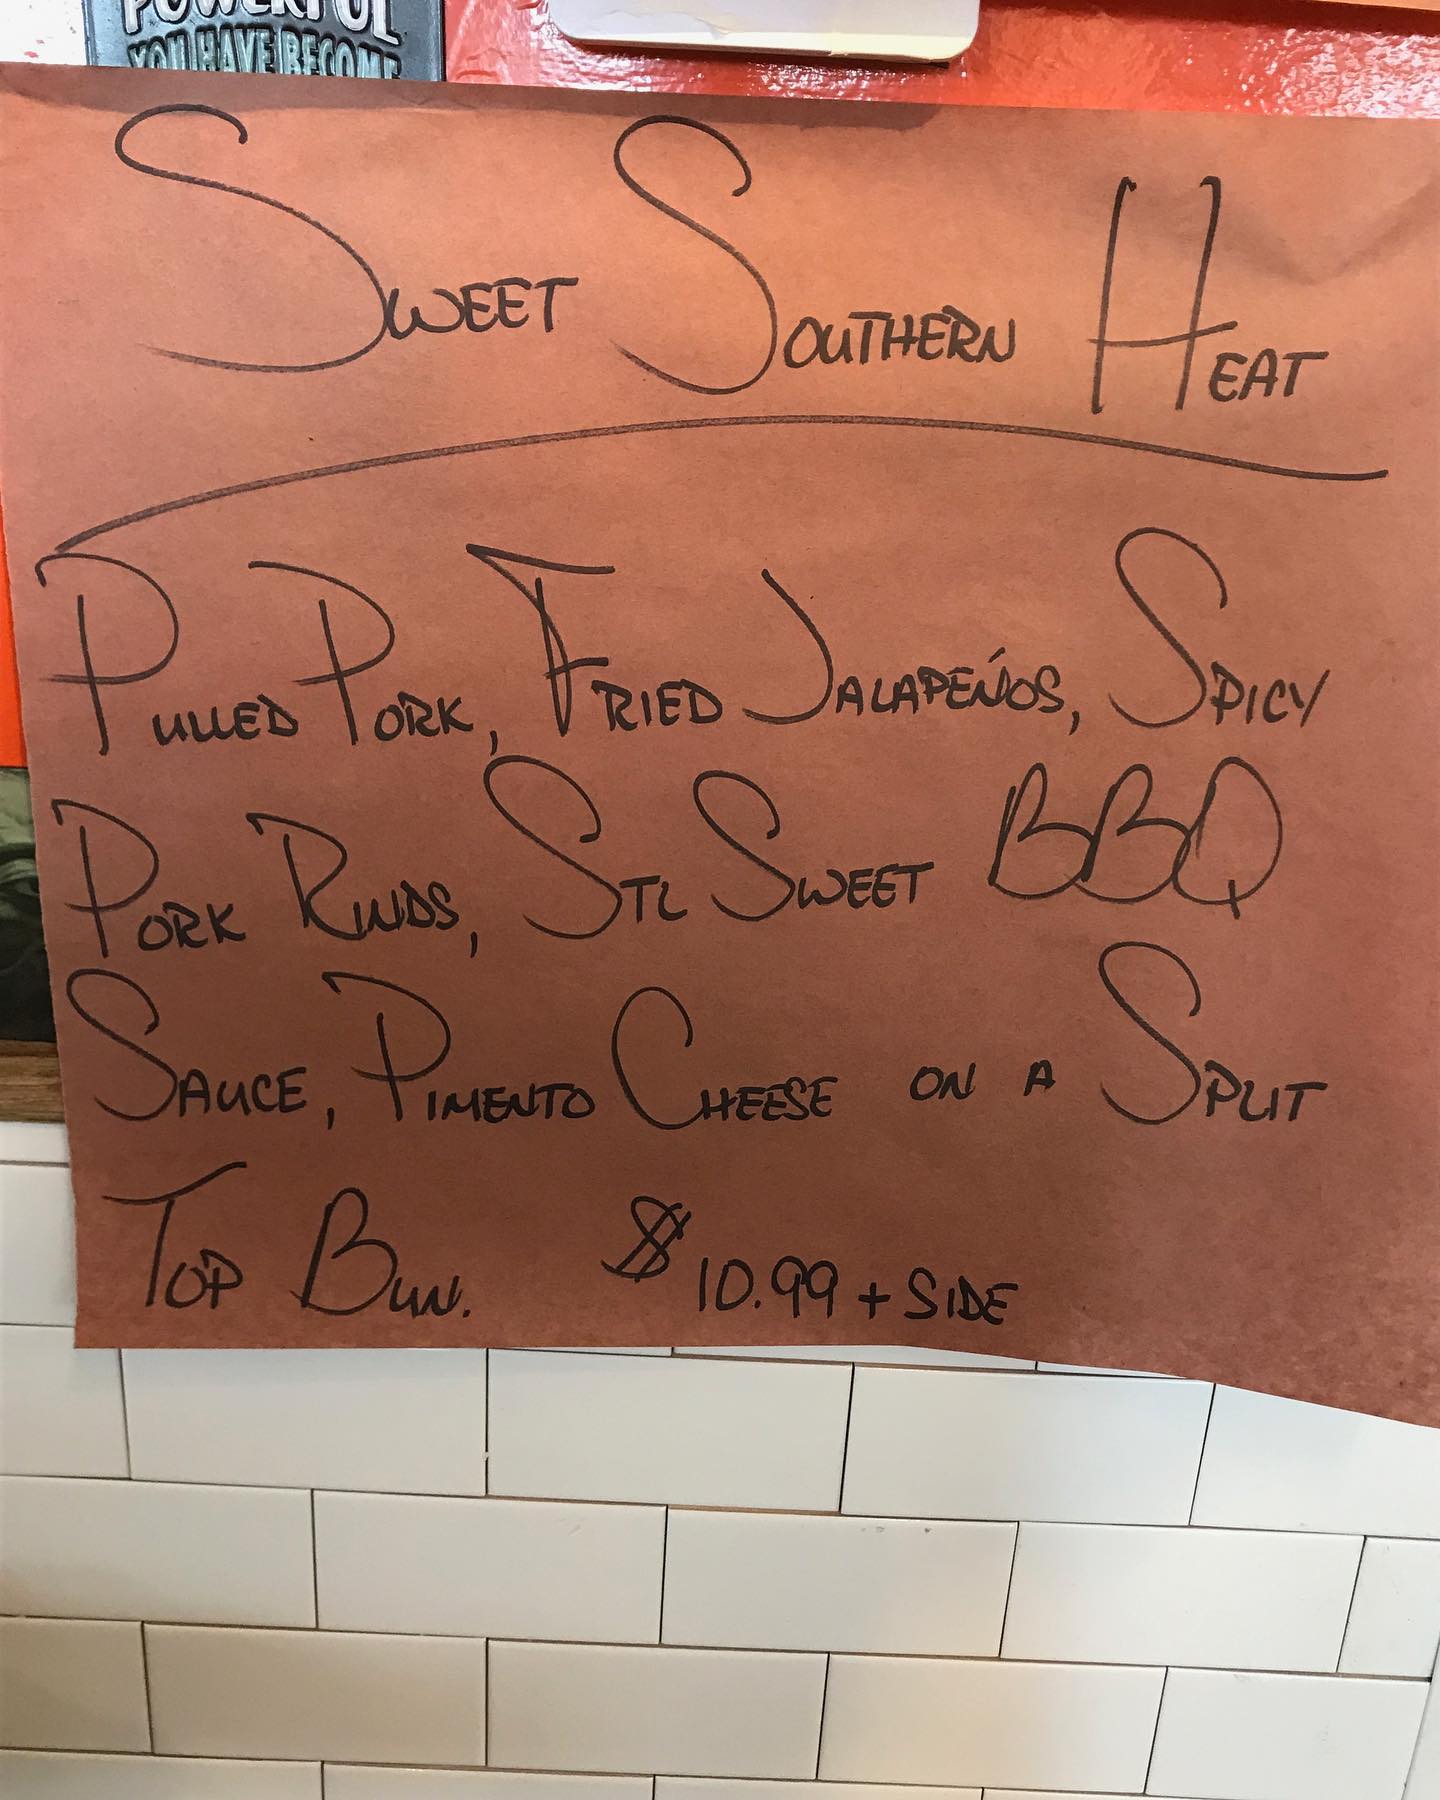 POWERFUL
YOU HAVE BECOME
SWEET SOUTHERN HEAT
PULLED PORK, FRIED JALAPEÑOS, SPICY
PORK RINDS, STL SWEET BBQ
SAUCE, PIMENTO CHEESE ON A SPLIT
TOP BUN. $10.99 + SIDE